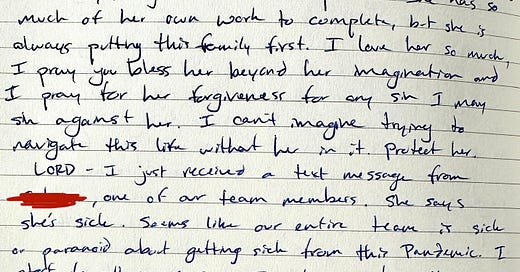 has so
much of her own work to complete, but she is
always putting this family first. I love her so much,
I pray you bless her beyond her imagination and
I pray for her forgiveness for any sin I may
sin against her. I can't imagine trying to
navigate this life without her in it. Protect her.
LORD - I just received a text message from
, one of our team members. She says
she's sick. Seems like our entire team is sick
or paranoid about getting sick from this Pandemic. I